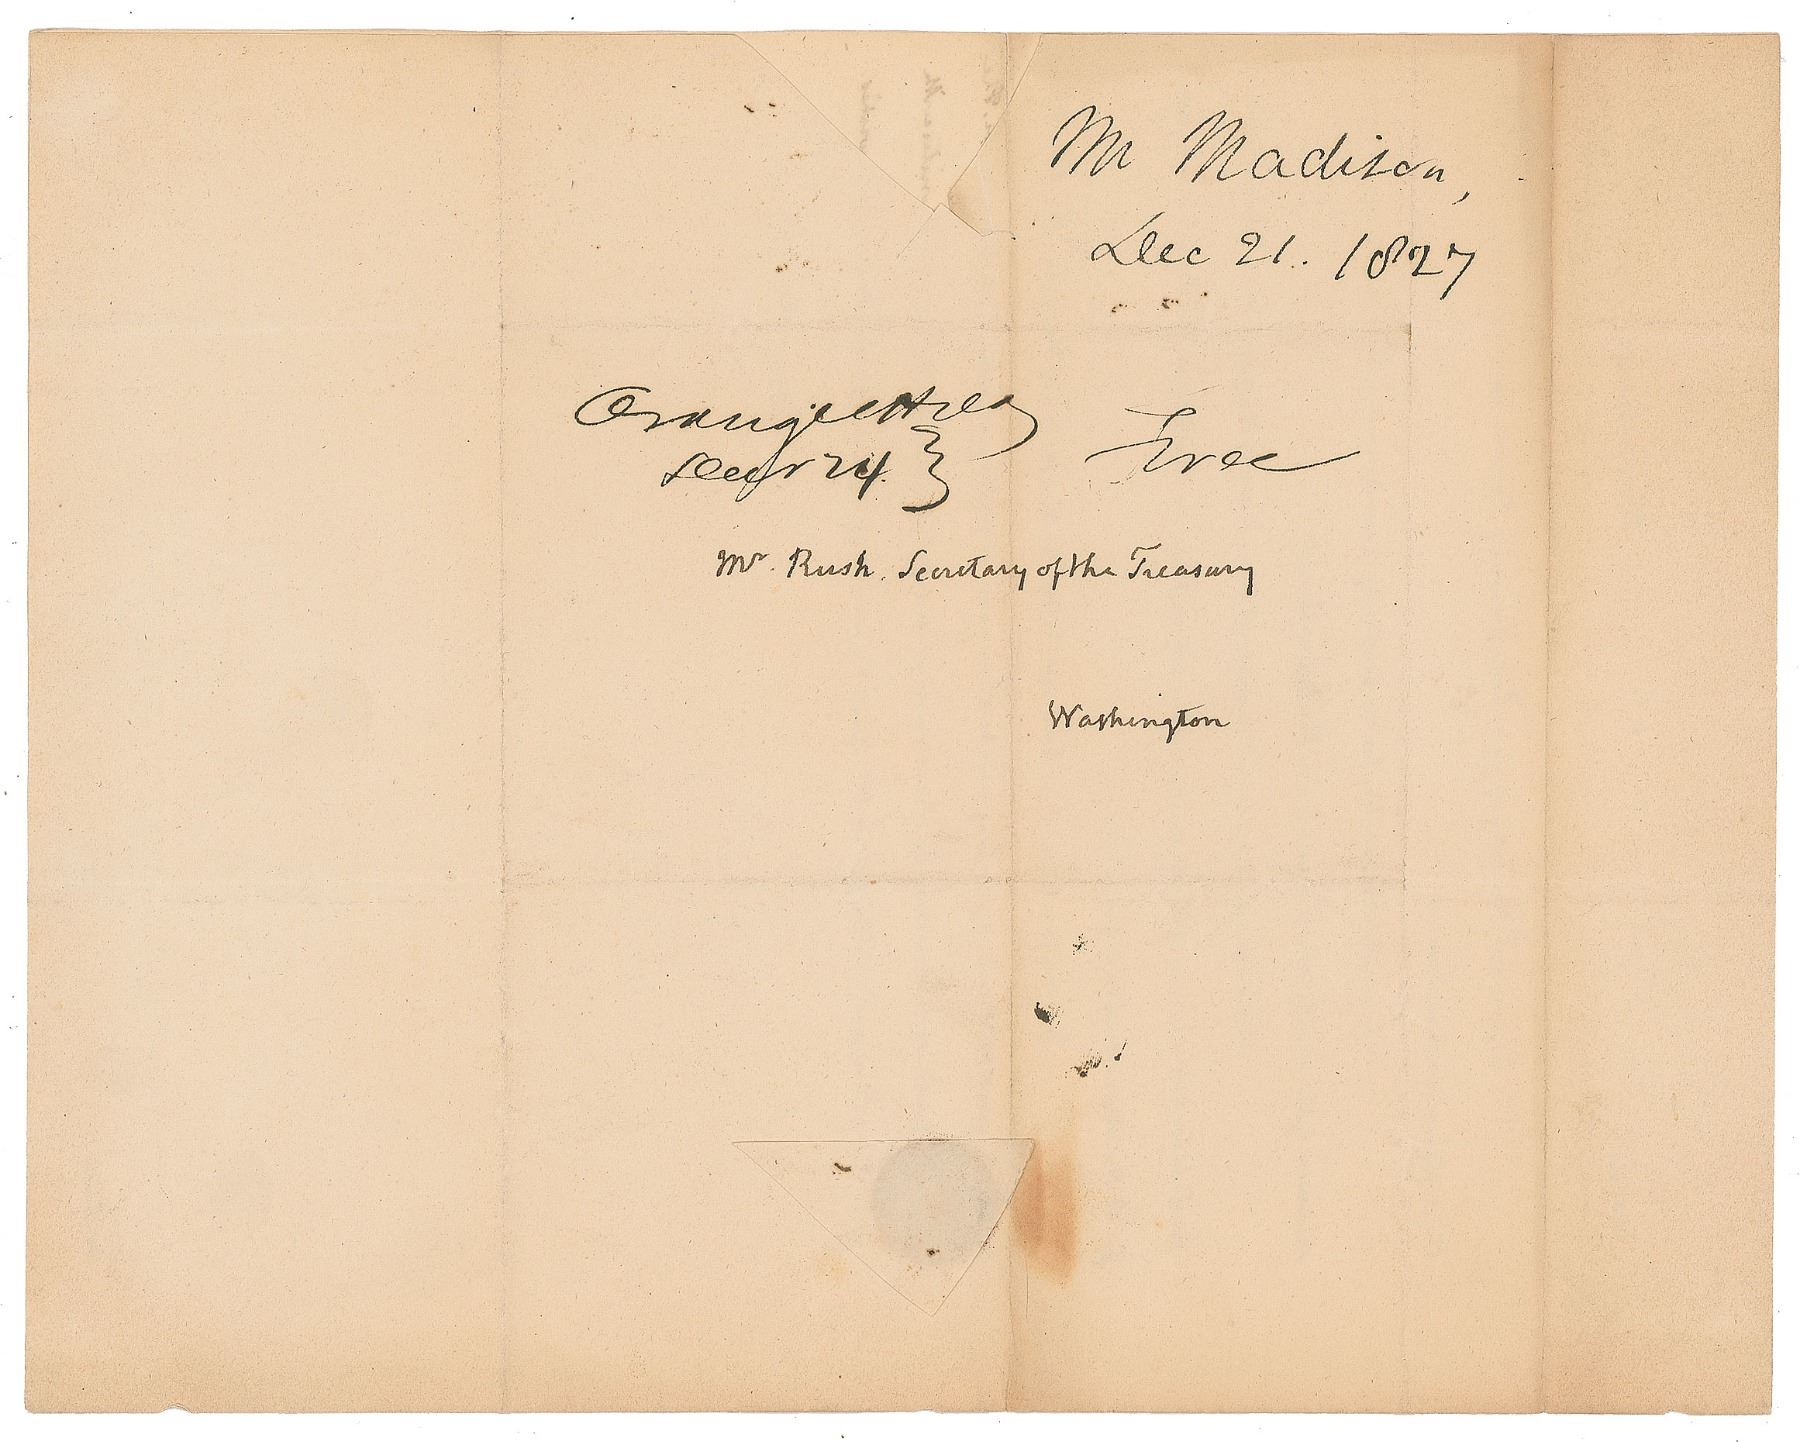 Mr Madison,
Dec 21. 1827
Orange
Decr 24.
Free
Mr. Rush. Secretary of the Treasury
Washington